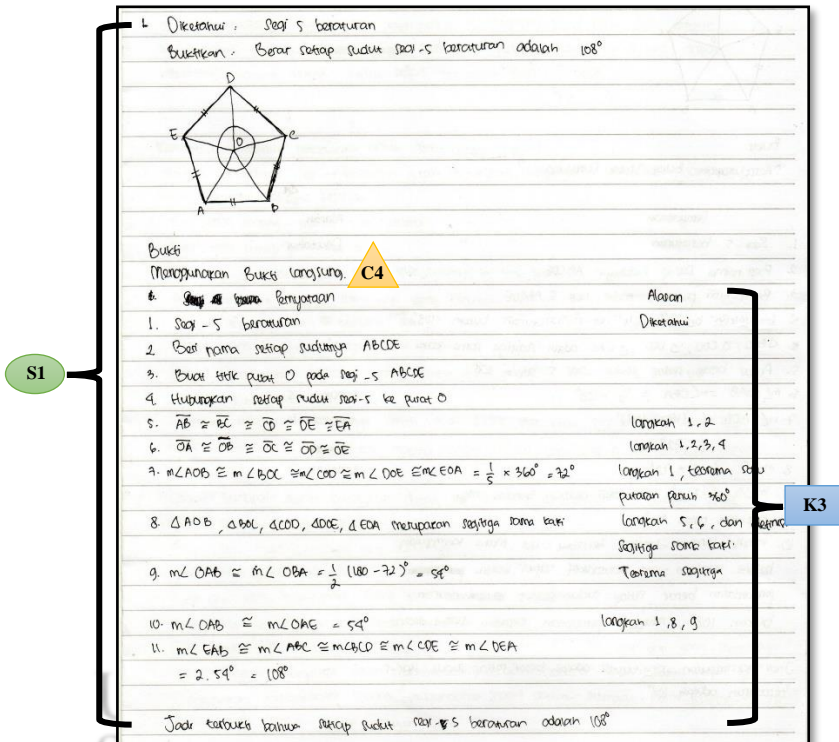 1. Diketahui : Segi 5 beraturan
Buktikan : Besar setiap sudut segi-5 beraturan adalah 108°
D
E
C
O
A
B
Bukti
Menggunakan Bukti langsung.
C4
Pernyataan Alasan
1. Segi-5 beraturan Diketahui
2. Beri nama setiap sudutnya ABCDE
3. Buat titik pusat O pada segi-5 ABCDE
4. Hubungkan setiap sudut segi-5 ke pusat O
5. A̅B̅ ≅ B̅C̅ ≅ C̅D̅ ≅ D̅E̅ ≅ E̅A̅ langkah 1, 2
6. O̅A̅ ≅ O̅B̅ ≅ O̅C̅ ≅ O̅D̅ ≅ O̅E̅ langkah 1,2,3,4
7. m∠AOB ≅ m∠BOC ≅ m∠COD ≅ m∠DOE ≅ m∠EOA = 1/5 × 360° = 72° langkah 1, teorema satu
putaran penuh 360°
8. △AOB, △BOC, △COD, △DOE, △EOA merupakan segitiga sama kaki langkah 5, 6, dan definisi
segitiga sama kaki.
9. m∠OAB ≅ m∠OBA = 1/2 (180-72)° = 54° Teorema segitiga
10. m∠OAB ≅ m∠OAE = 54° langkah 1, 8, 9
11. m∠EAB ≅ m∠ABC ≅ m∠BCD ≅ m∠CDE ≅ m∠DEA
= 2.54° = 108°
Jadi terbukti bahwa setiap sudut segi-5 beraturan adalah 108°
S1
K3